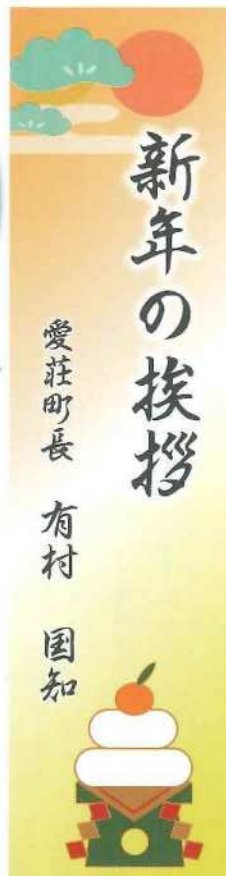 新年の挨拶
愛荘町長 有村 国知